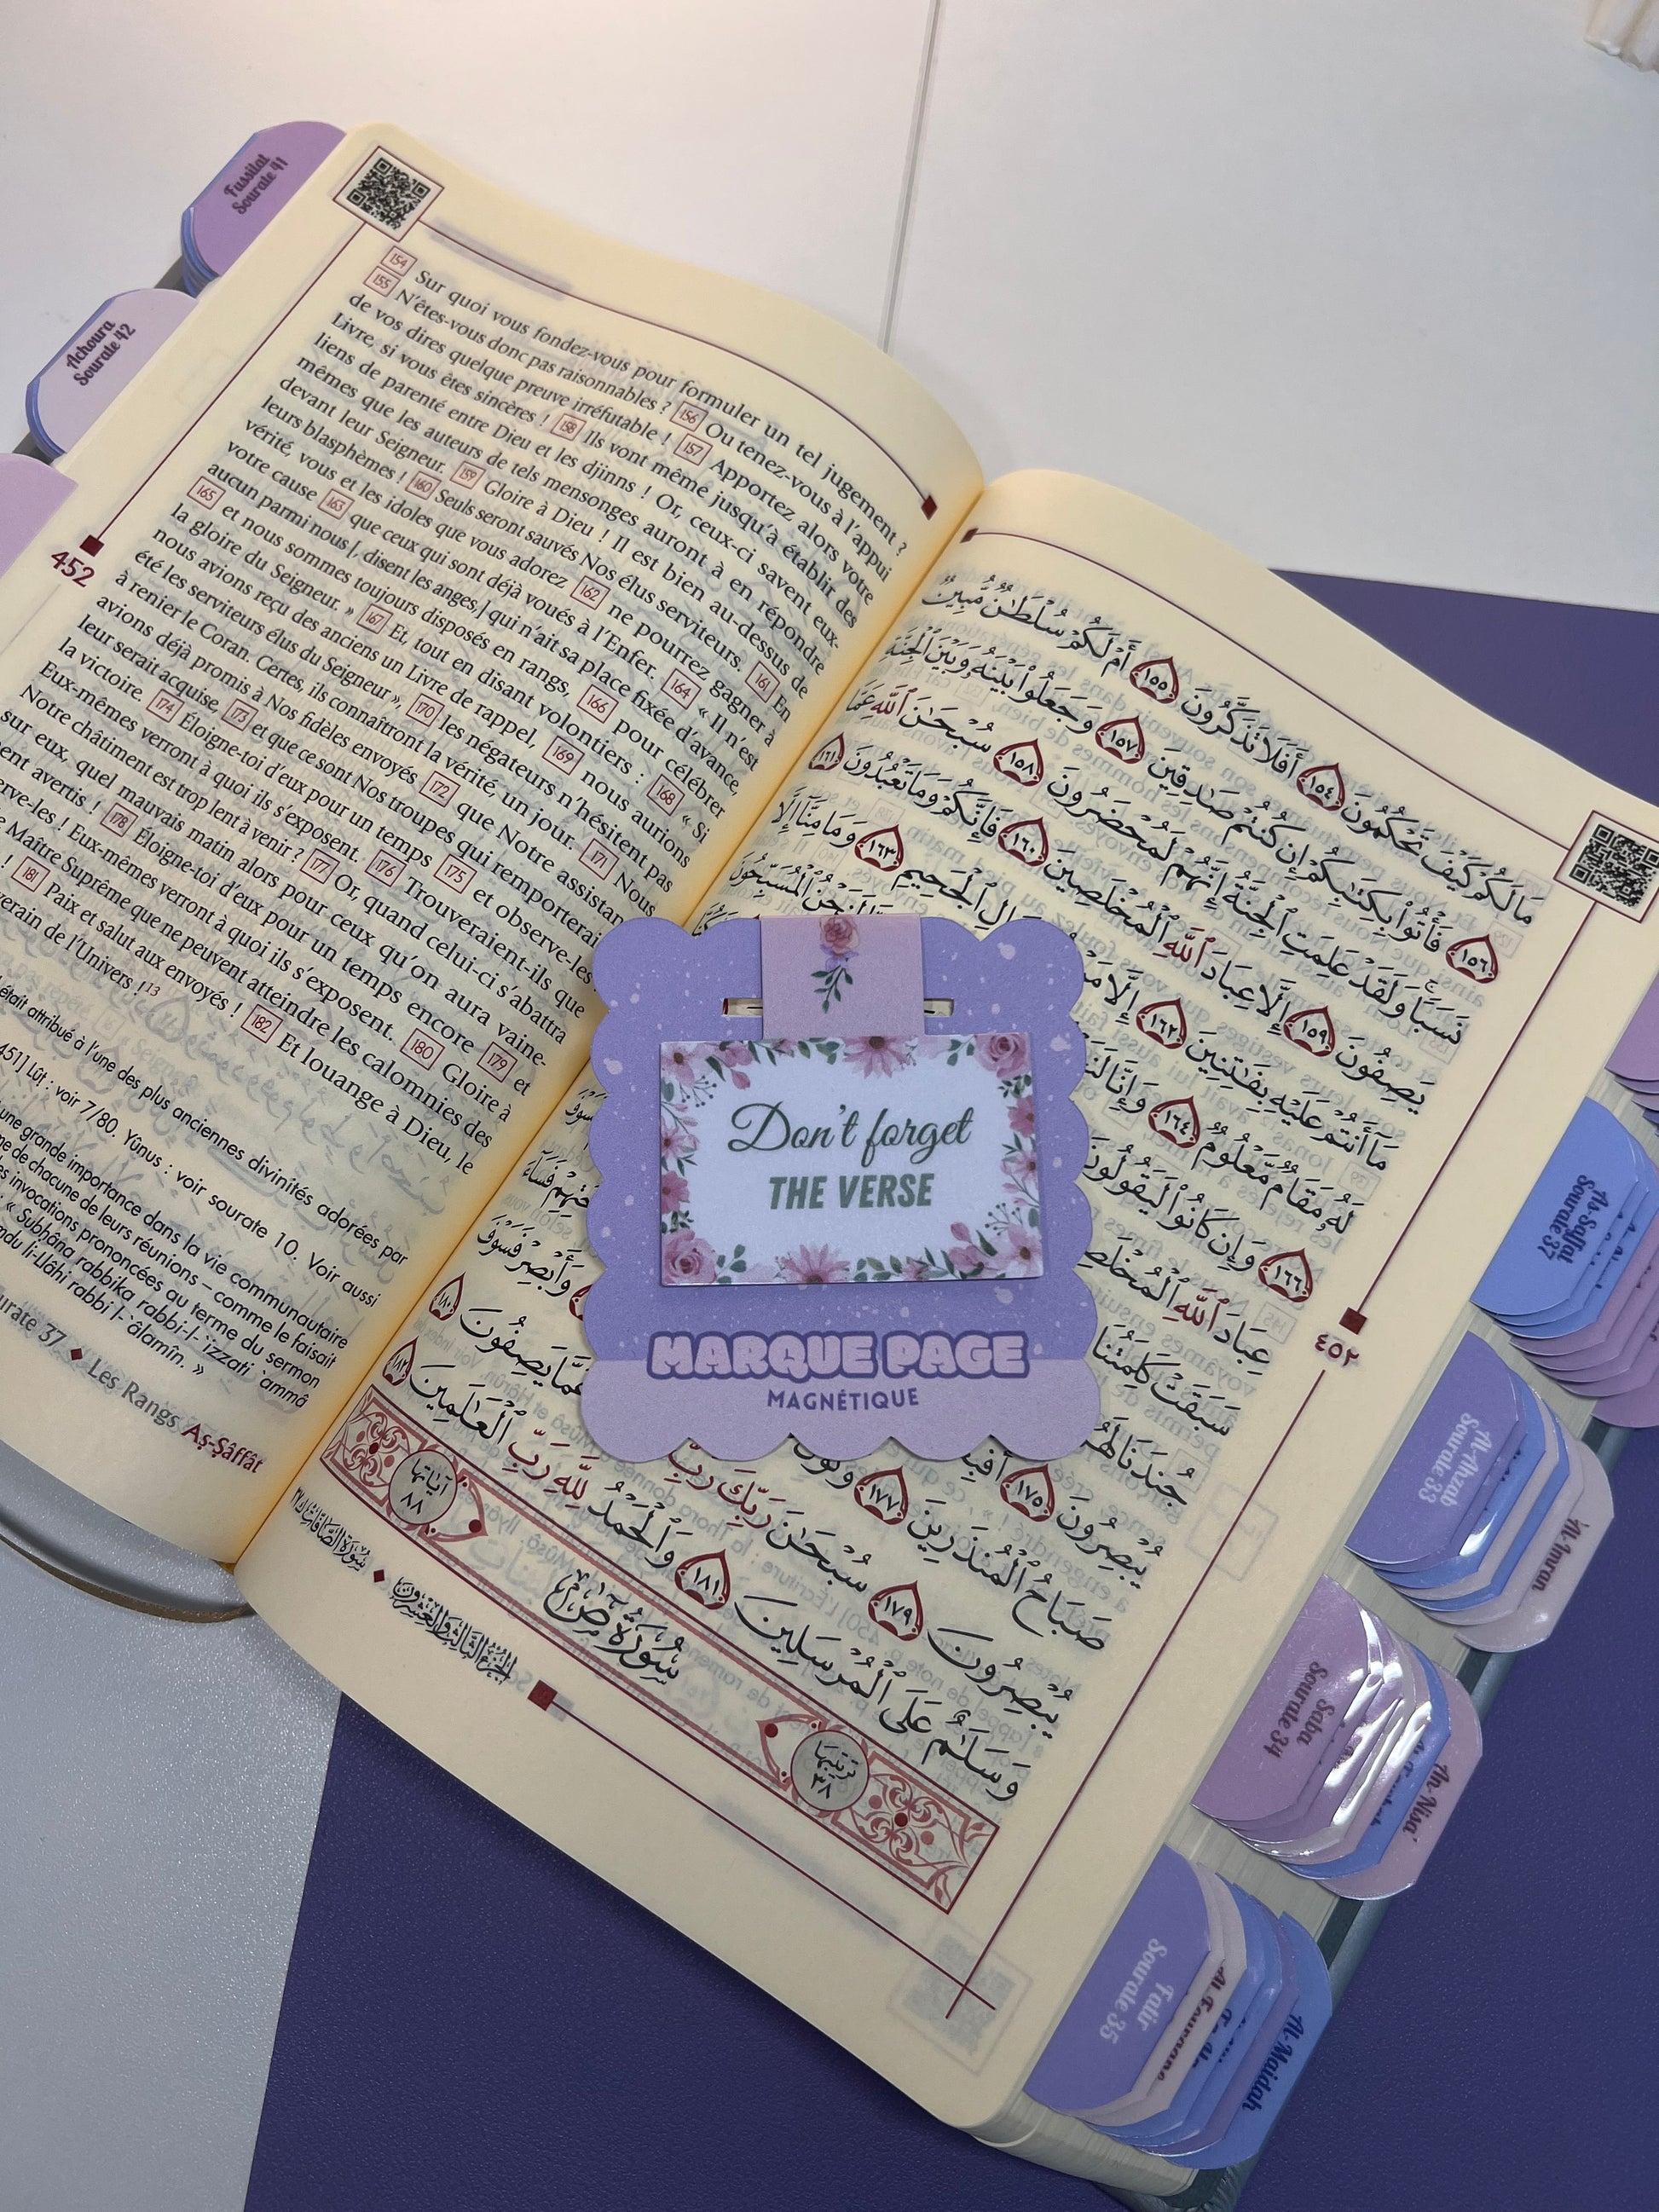 Fussilat
Sourate 41
Achoura
Sourate 42
154 Sur quoi vous fondez-vous pour formuler un tel jugement ?
155 N'êtes-vous donc pas raisonnables ? 156 Ou tenez-vous à l'appui
de vos dires quelque preuve irréfutable ! 157 Apportez alors votre
Livre, si vous êtes sincères ! 158 Ils vont même jusqu'à établir des
liens de parenté entre Dieu et les djinns ! Or, ceux-ci savent eux-
mêmes que les auteurs de tels mensonges auront à en répondre
devant leur Seigneur. 159 Gloire à Dieu ! Il est bien au-dessus de
leurs blasphèmes ! 160 Seuls seront sauvés Nos élus serviteurs. 161 En
vérité, vous et les idoles que vous adorez 162 ne pourrez gagner à
votre cause 163 que ceux qui sont déjà voués à l'Enfer. 164 « Il n'est
aucun parmi nous [, disent les anges,] qui n'ait sa place fixée d'avance,
165 et nous sommes toujours disposés en rangs, 166 pour célébrer
la gloire du Seigneur. » 167 Et, tout en disant volontiers : 168 « Si
nous avions reçu des anciens un Livre de rappel, 169 nous aurions
été les serviteurs élus du Seigneur », 170 les négateurs n'hésitent pas
à renier le Coran. Certes, ils connaîtront la vérité, un jour. 171 Nous
avions déjà promis à Nos fidèles envoyés 172 que Notre assistan
leur serait acquise, 173 et que ce sont Nos troupes qui remporterai
la victoire. 174 Éloigne-toi d'eux pour un temps 175 et observe-les
Eux-mêmes verront à quoi ils s'exposent. 176 Trouveraient-ils que
Notre châtiment est trop lent à venir ? 177 Or, quand celui-ci s'abattra
sur eux, quel mauvais matin alors pour ceux qu'on aura vaine-
ent avertis ! 178 Éloigne-toi d'eux pour un temps encore 179 et
erve-les ! Eux-mêmes verront à quoi ils s'exposent. 180 Gloire à
Maître Suprême que ne peuvent atteindre les calomnies des
! 181 Paix et salut aux envoyés ! 182 Et louange à Dieu, le
verain de l'Univers !13
était attribué à l'une des plus anciennes divinités adorées par
451] Lût : voir 7/80. Yûnus : voir sourate 10. Voir aussi
une grande importance dans la vie communautaire
me de chacune de leurs réunions – comme le faisait
es invocations prononcées au terme du sermon
: « Subhâna rabbika rabbi-l-`izzati `ammâ
mdu li-Llâhi rabbi l-`âlamîn. »
urate 37 ♦ Les Rangs Aṣ-Ṣâffât
452
مَا لَكُمْ كَيْفَ تَحْكُمُونَ ١٥٤ أَفَلَا تَذَكَّرُونَ ١٥٥ أَمْ لَكُمْ سُلْطَٰنٌ مُّبِينٌ
١٥٦ فَأْتُوا۟ بِكِتَٰبِكُمْ إِن كُنتُمْ صَٰدِقِينَ ١٥٧ وَجَعَلُوا۟ بَيْنَهُۥ وَبَيْنَ ٱلْجِنَّةِ
نَسَبًا وَلَقَدْ عَلِمَتِ ٱلْجِنَّةُ إِنَّهُمْ لَمُحْضَرُونَ ١٥٨ سُبْحَٰنَ ٱللَّهِ عَمَّا
يَصِفُونَ ١٥٩ إِلَّا عِبَادَ ٱللَّهِ ٱلْمُخْلَصِينَ ١٦٠ فَإِنَّكُمْ وَمَا تَعْبُدُونَ ١٦١
مَآ أَنتُمْ عَلَيْهِ بِفَٰتِنِينَ ١٦٢ إِلَّا مَنْ الِ ٱلْجَحِيمِ ١٦٣ وَمَا مِنَّآ إِلَّا
لَهُۥ مَقَامٌ مَّعْلُومٌ ١٦٤ وَإِنَّا لَنَ ٱلْمُسَبِّحُونَ
١٦٦ وَإِن كَانُوا۟ لَيَقُولُونَ
عِبَادَ ٱللَّهِ ٱلْمُخْلَصِ
سَبَقَتْ كَلِمَتُنَا
جُندَنَا لَهُمُ
يُبْصِرُونَ ١٧٥ أَفَبِ
صَبَاحُ ٱلْمُنذَرِينَ ١٧٧ وَتَوَلَّ وَأَبْصِرْ فَسَوْفَ
يُبْصِرُونَ ١٧٩ سُبْحَٰنَ رَبِّكَ رَبِّ عَمَّا يَصِفُونَ ١٨٠
وَسَلَٰمٌ عَلَى ٱلْمُرْسَلِينَ ١٨١ وَٱلْحَمْدُ لِلَّهِ رَبِّ ٱلْعَٰلَمِينَ ١٨٢
ترتيبها ٣٨
سُورَةُ صٓ
آياتها ٨٨
الجزء الثالث والعشرون ♦ سورة الصافات
٤٥٢
Don't forget
THE VERSE
MARQUE PAGE
MAGNÉTIQUE
As-Saffat
Sourate 37
Al-Ahzab
Sourate 33
Al-Imran
Saba
Sourate 34
An-Nisa'
Fatir
Sourate 35
Al-Fourqane
Al-Maidah